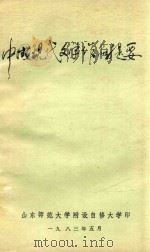 中国现代文学简编提要
山东师范大学附设自修大学印
一九八三年五月